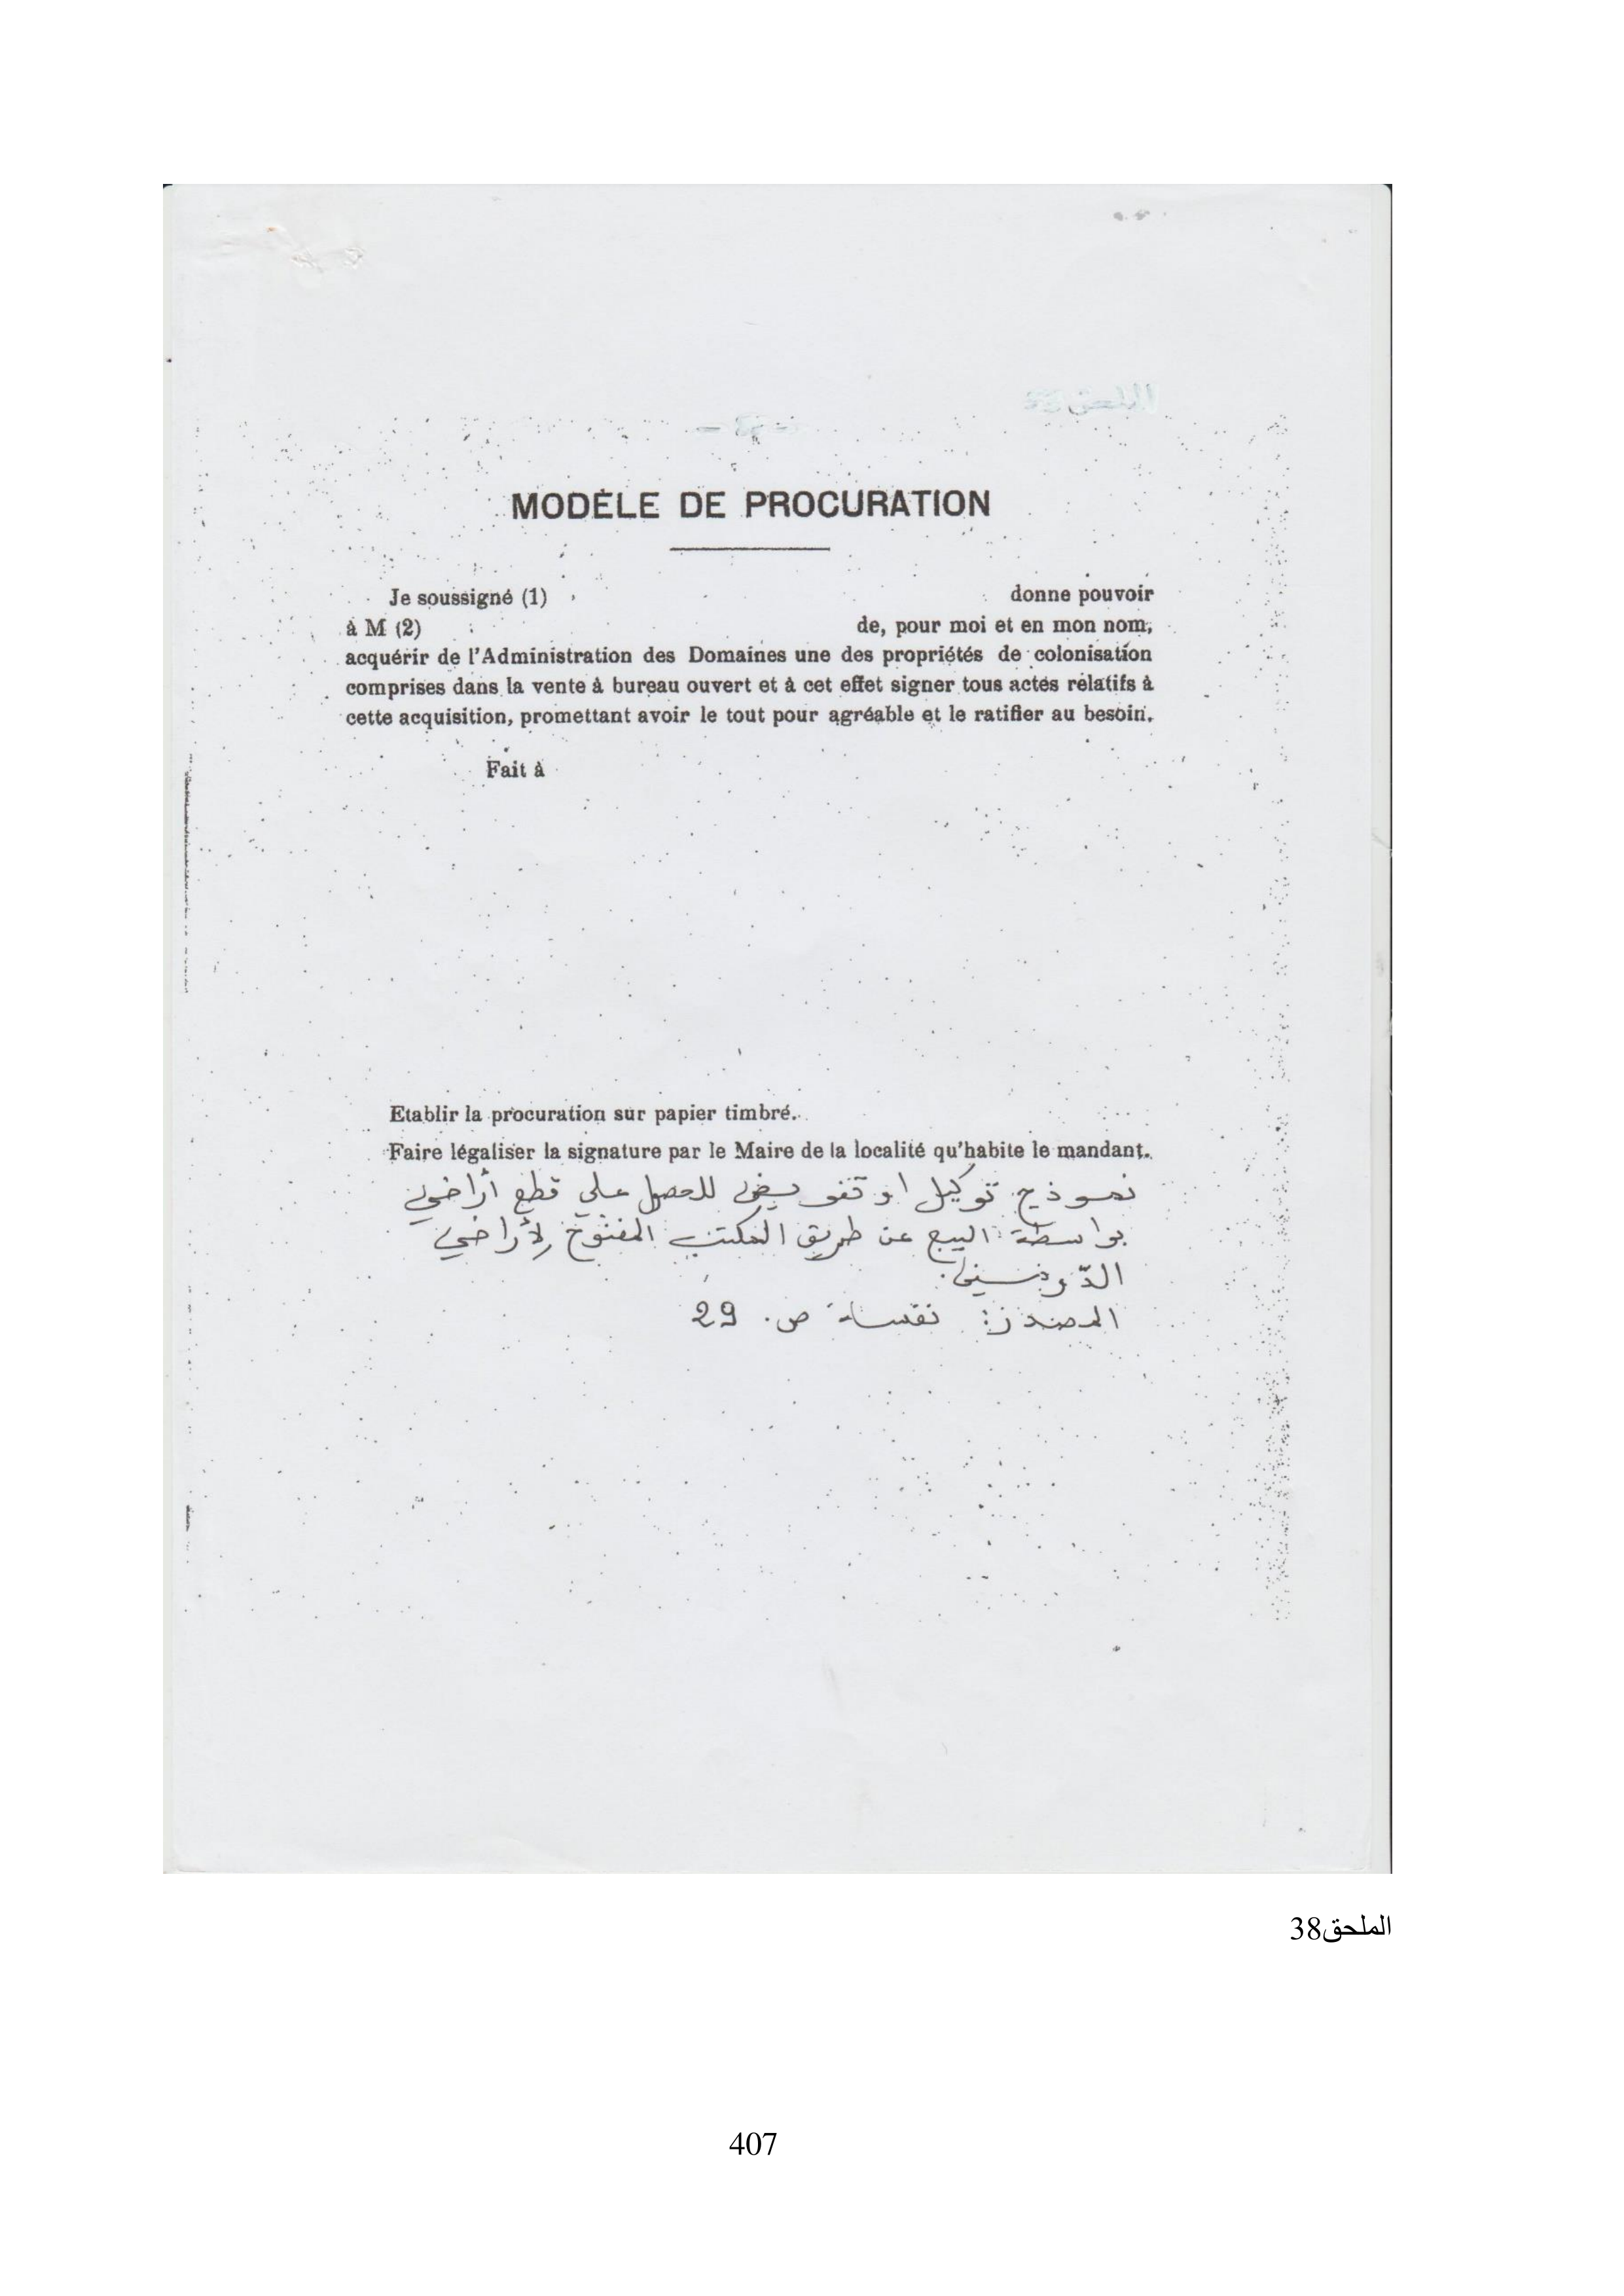 الملحق
MODÈLE DE PROCURATION
Je soussigné (1) donne pouvoir
à M (2) de, pour moi et en mon nom,
acquérir de l'Administration des Domaines une des propriétés de colonisation
comprises dans la vente à bureau ouvert et à cet effet signer tous actes relatifs à
cette acquisition, promettant avoir le tout pour agréable et le ratifier au besoin.
Fait à
Etablir la procuration sur papier timbré.
Faire légaliser la signature par le Maire de la localité qu'habite le mandant.
نموذج توكيل او تفويض للحصول على قطع أراضي
بواسطة البيع عن طريق المكتب المفتوح لأراضي
الدومين.
المصدر: نفسه ص. 29
الملحق38
407